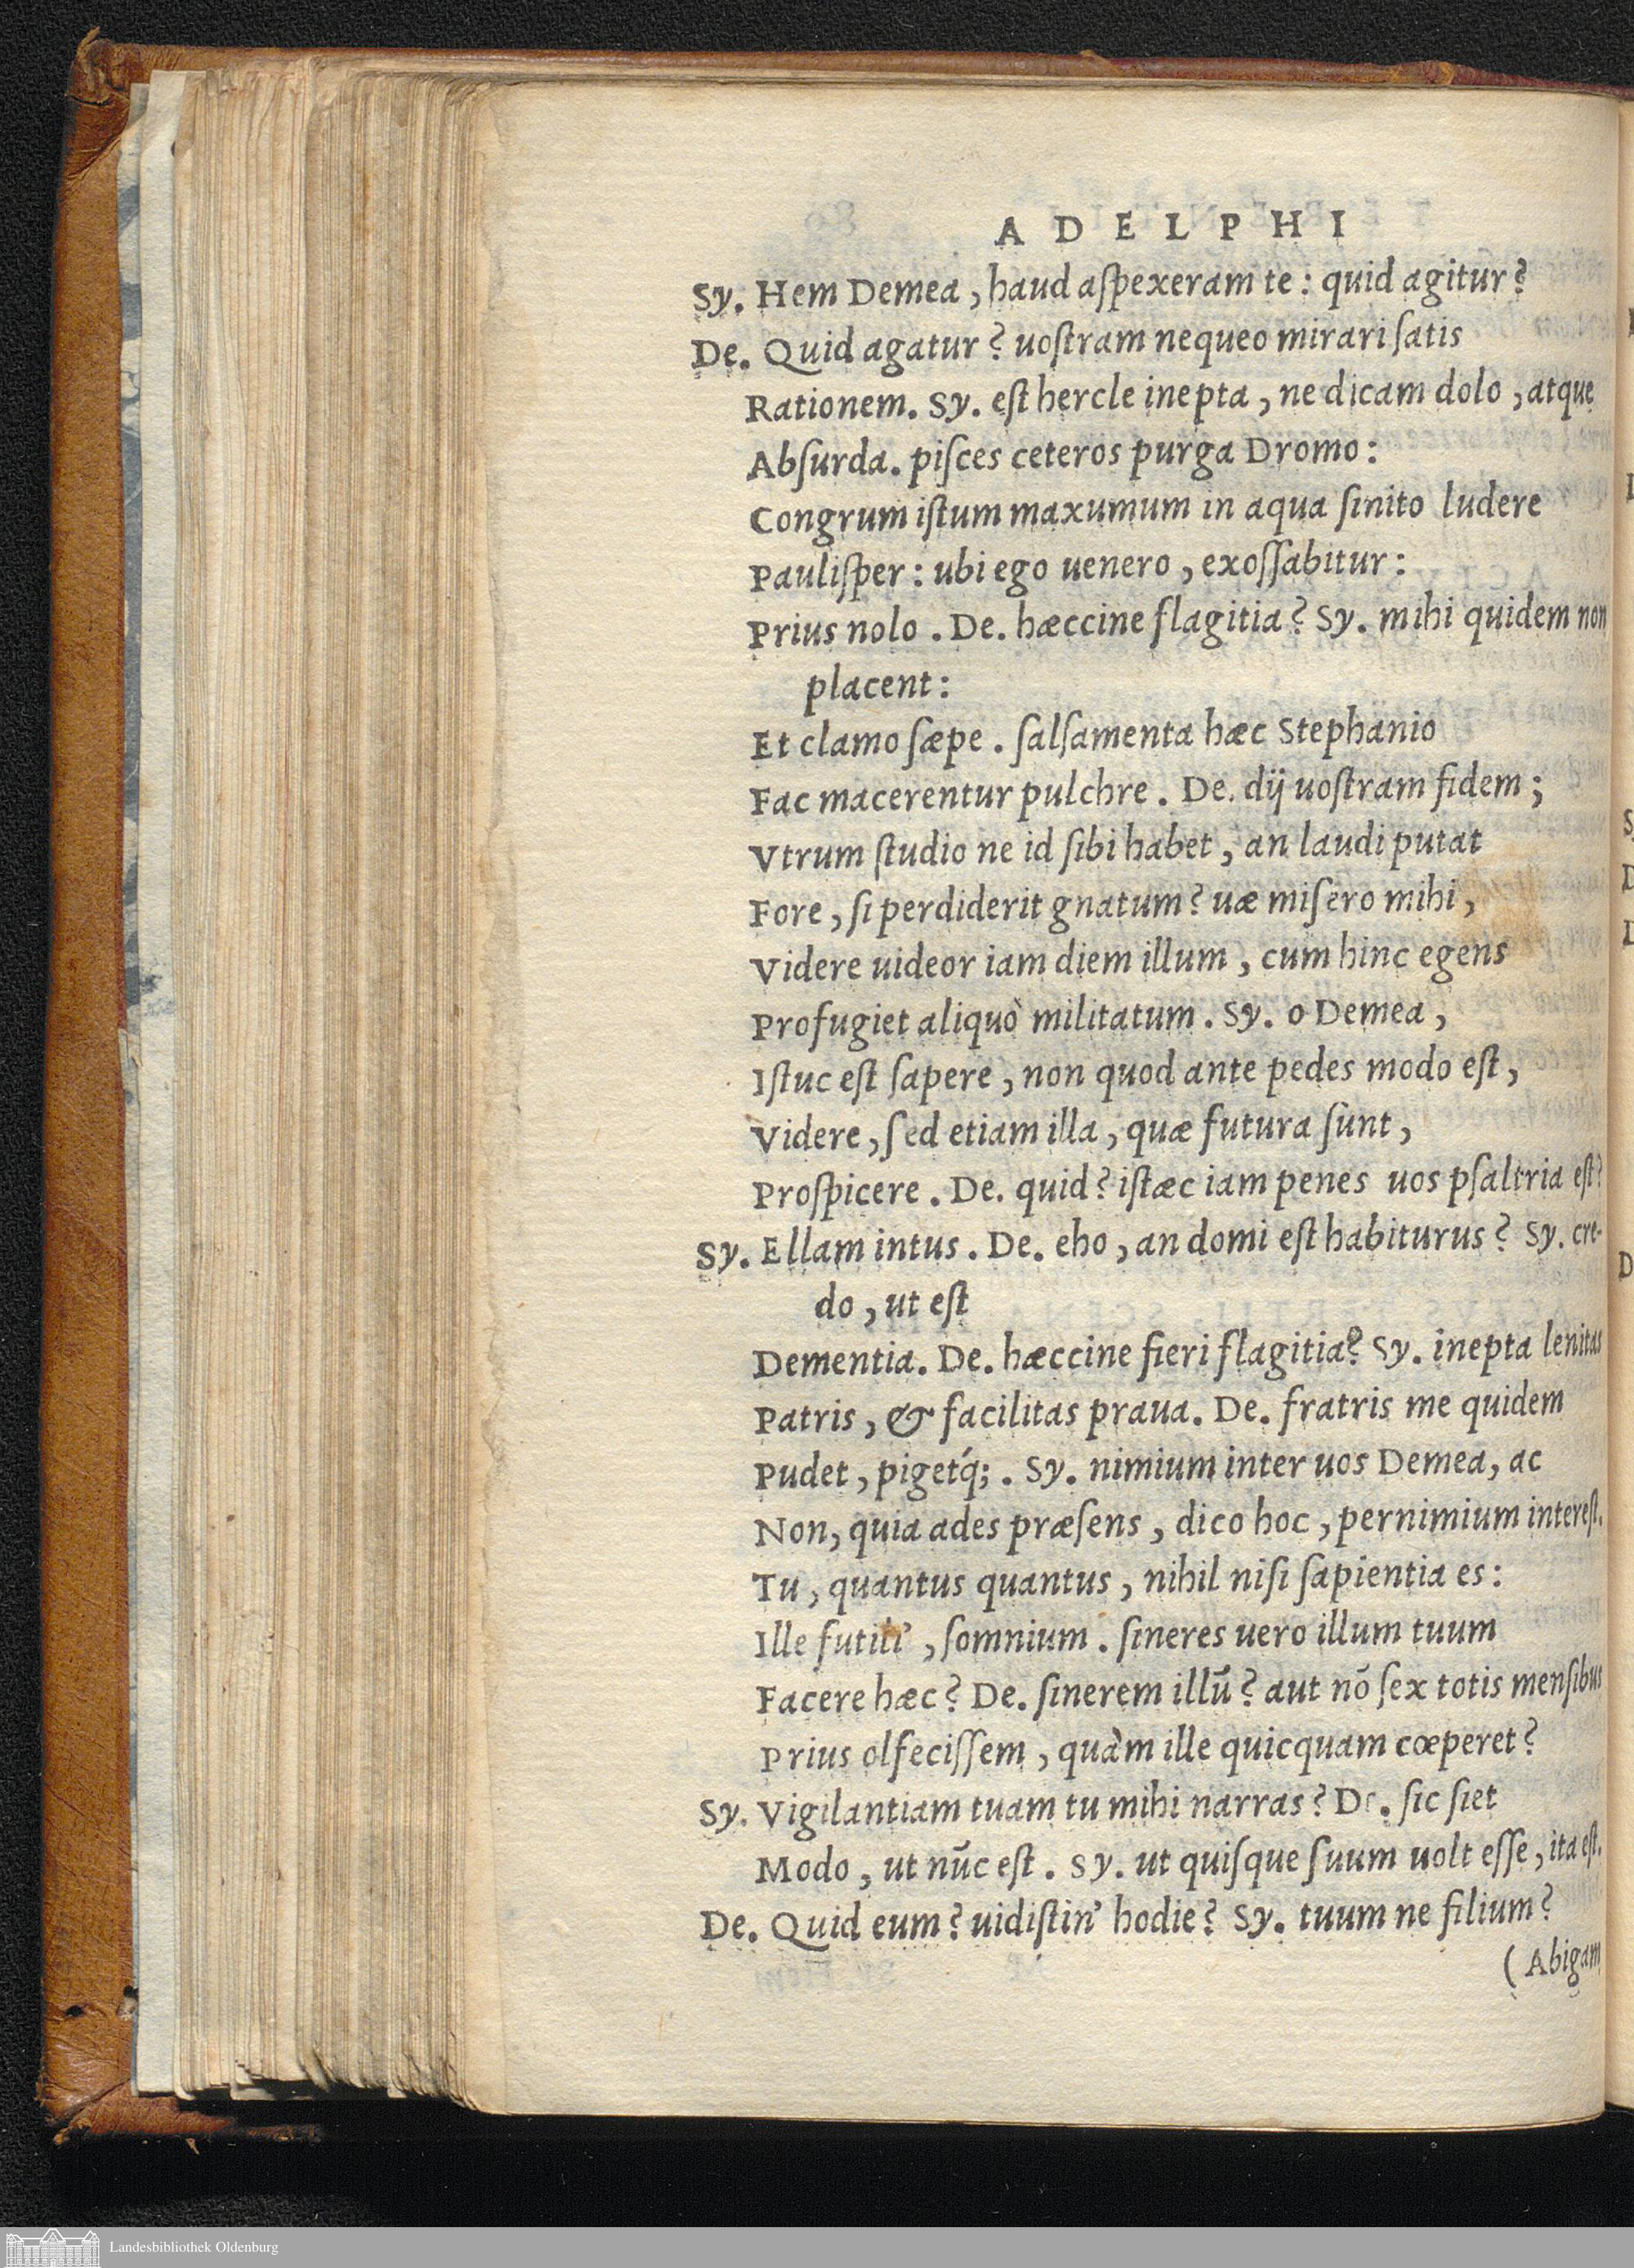 ADELPHI
Sy. Hem Demea, haud aſpexeram te: quid agitur?
De. Quid agatur? uoſtram nequeo mirari ſatis
Rationem. Sy. eſt hercle inepta, ne dicam dolo, atque
Abſurda. piſces ceteros purga Dromo:
Congrum iſtum maxumum in aqua ſinito ludere
Pauliſper: ubi ego uenero, exoſſabitur:
Prius nolo. De. hæccine flagitia? Sy. mihi quidem non
placent:
Et clamo ſæpe. ſalſamenta hæc Stephanio
Fac macerentur pulchre. De. dij uoſtram fidem;
Vtrum ſtudio ne id ſibi habet, an laudi putat
Fore, ſi perdiderit gnatum? uæ miſero mihi,
Videre uideor iam diem illum, cum hinc egens
Profugiet aliquò militatum. Sy. o Demea,
Iſtuc eſt ſapere, non quod ante pedes modo eſt,
Videre, ſed etiam illa, quæ futura ſunt,
Proſpicere. De. quid? iſtæc iam penes uos pſaltria eſt?
Sy. Ellam intus. De. eho, an domi eſt habiturus? Sy. cre-
do, ut eſt
Dementia. De. hæccine fieri flagitia? Sy. inepta lenitas
Patris, & facilitas praua. De. fratris me quidem
Pudet, pigetq́;. Sy. nimium inter uos Demea, ac
Non, quia ades præſens, dico hoc, pernimium intereſt.
Tu, quantus quantus, nihil niſi ſapientia es:
Ille futili', ſomnium. ſineres uero illum tuum
Facere hæc? De. ſinerem illū? aut nō ſex totis menſibus
Prius olfeciſſem, quàm ille quicquam cœperet?
Sy. Vigilantiam tuam tu mihi narras? De. ſic ſiet
Modo, ut nūc eſt. Sy. ut quiſque ſuum uolt eſſe, ita eſt.
De. Quid eum? uidiſtin' hodie? Sy. tuum ne filium?
(Abigam
Landesbibliothek Oldenburg